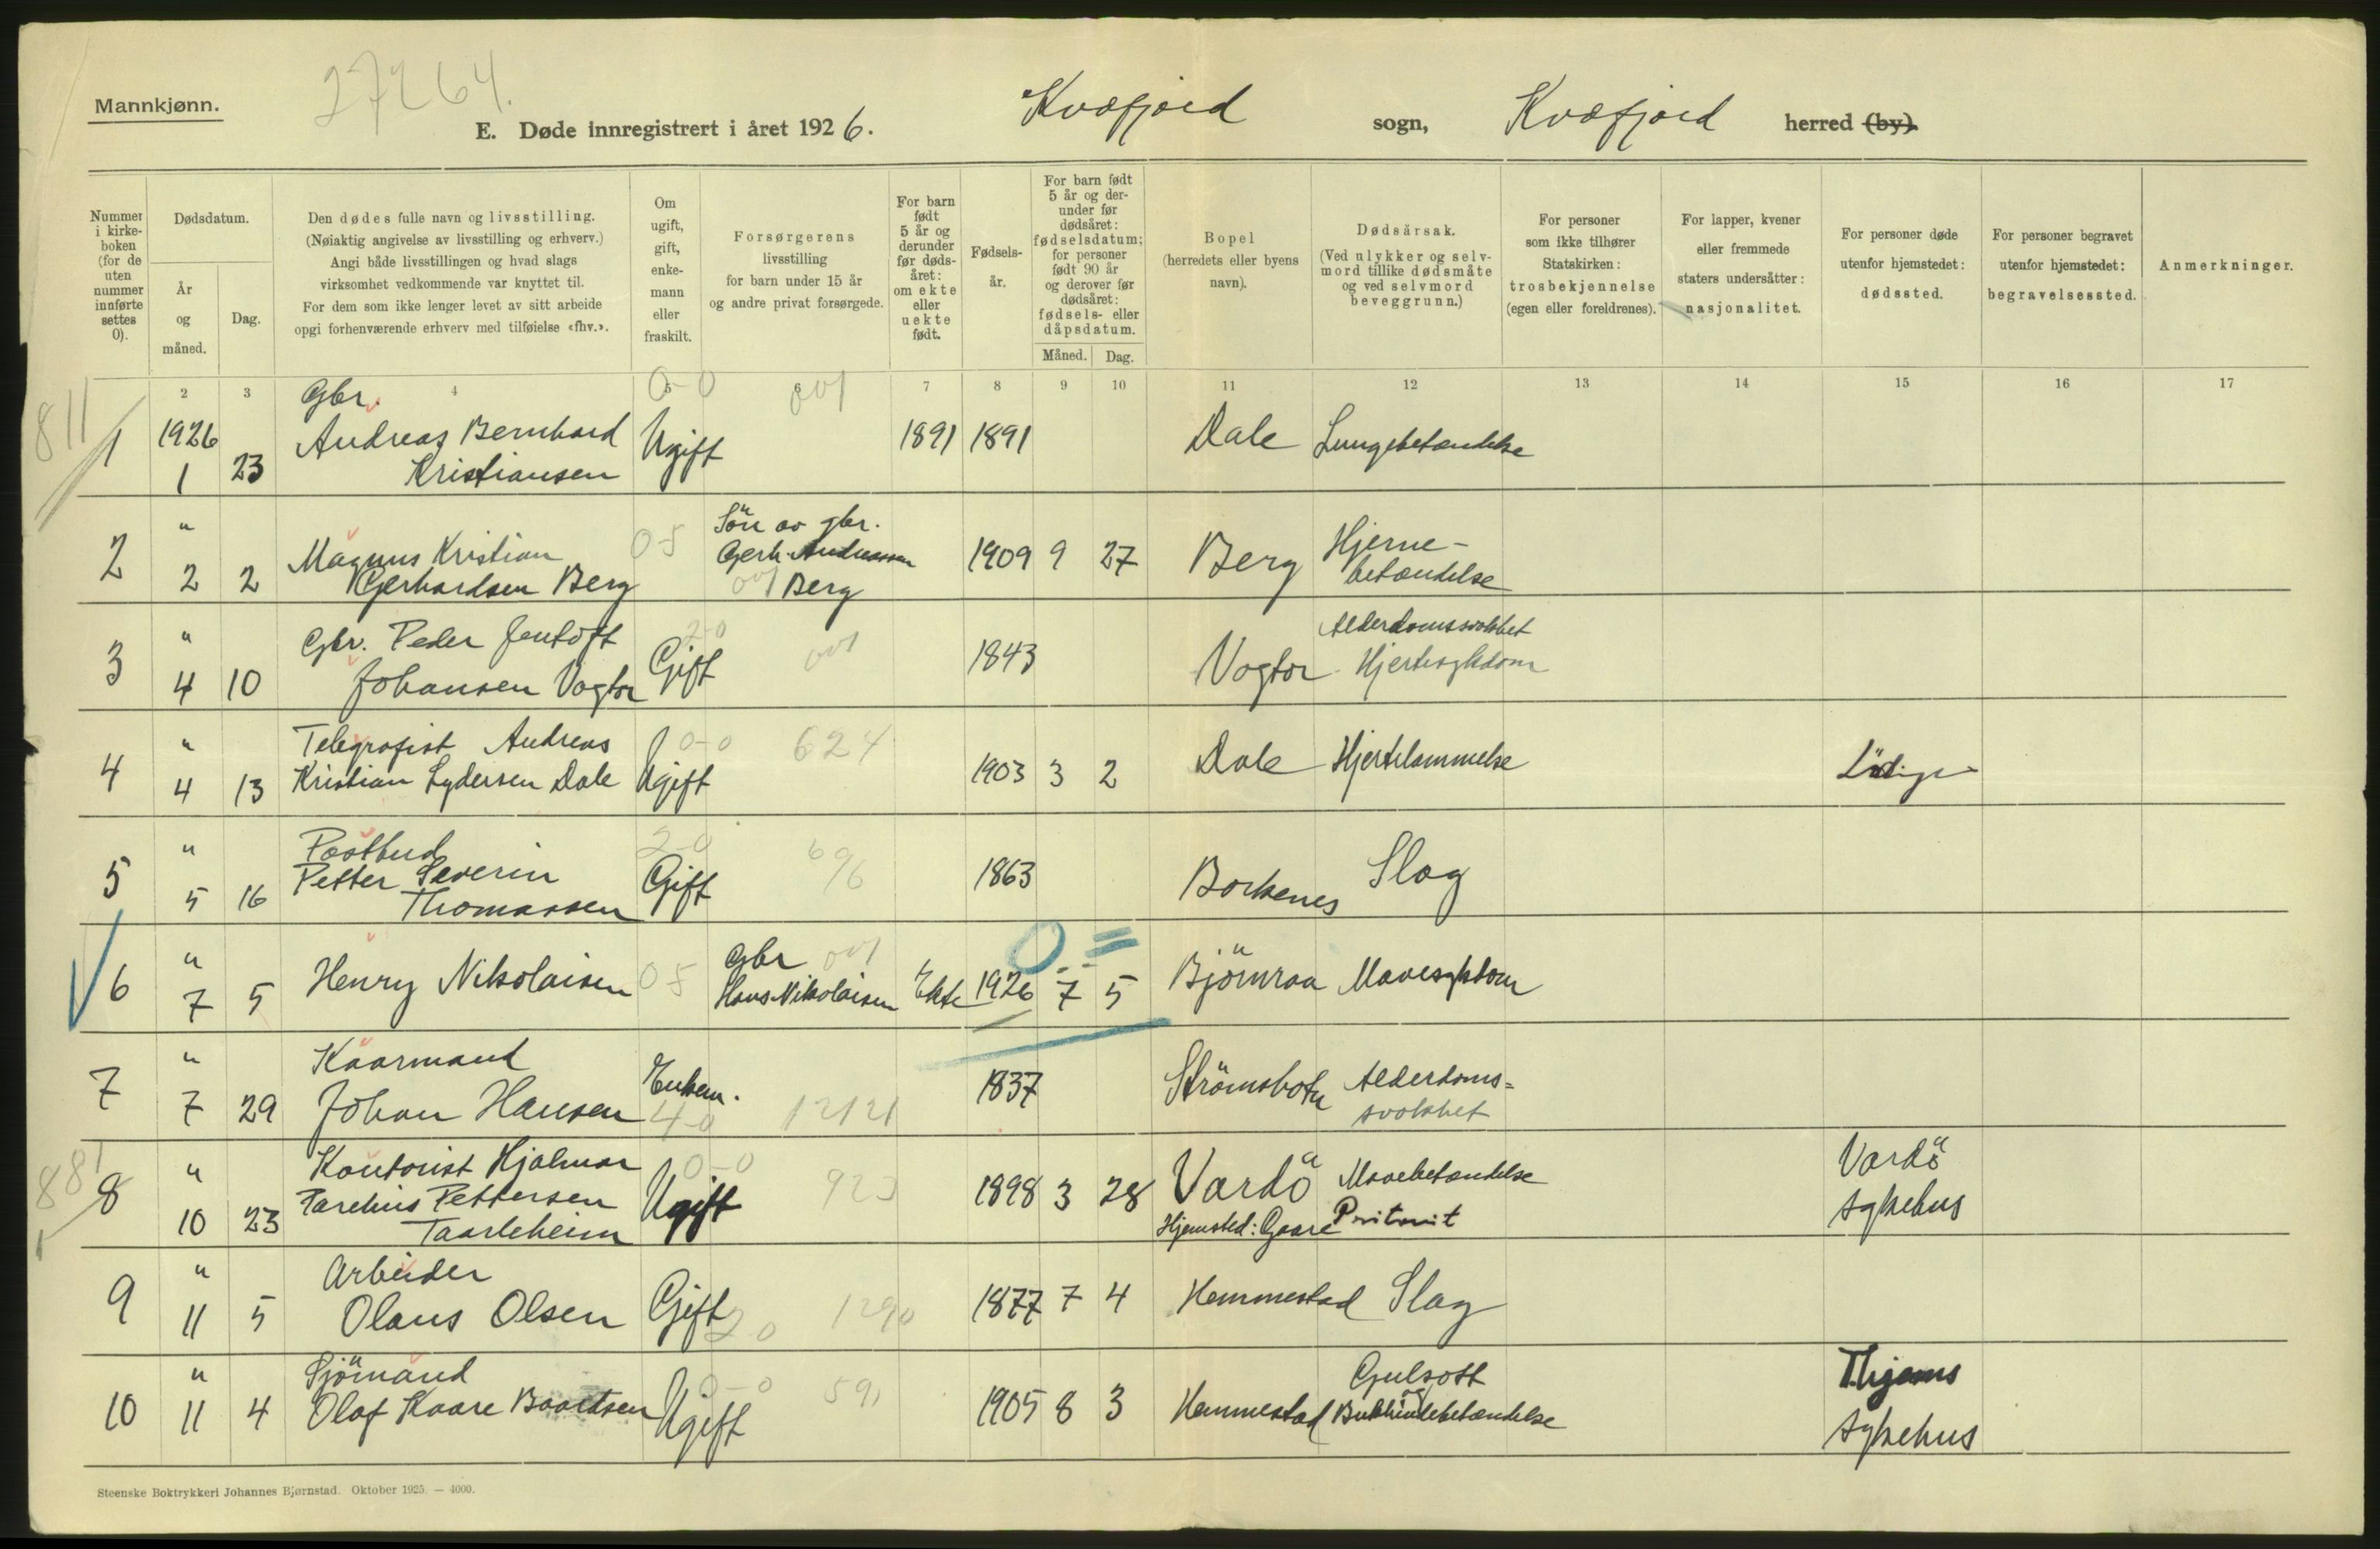 Mannkjønn.
27264.
E. Døde innregistrert i året 1926.
Kvæfjord sogn, Kvæfjord herred (by).
Nummer i kirkeboken (for de uten nummer innførte settes 0).
Dødsdatum.
År og måned.
Dag.
Den dødes fulle navn og livsstilling.
(Nøiaktig angivelse av livsstilling og erhverv.)
Angi både livsstillingen og hvad slags
virksomhet vedkommende var knyttet til.
For dem som ikke lenger levet av sitt arbeide
opgi forhenværende erhverv med tilføielse «fhv.».
Om ugift, gift, enkemann eller fraskilt.
Forsørgerens
livsstilling
for barn under 15 år
og andre privat forsørgede.
For barn født 5 år og derunder før dødsåret: om ekte eller uekte født.
Fødselsår.
For barn født 5 år og derunder før dødsåret: fødselsdatum; for personer født 90 år og derover før dødsåret: fødsels- eller dåpsdatum.
Måned. Dag.
Bopel
(herredets eller byens
navn).
Dødsårsak.
(Ved ulykker og selvmord tillike dødsmåte og ved selvmord beveggrunn.)
For personer
som ikke tilhører
Statskirken:
trosbekjennelse
(egen eller foreldrenes).
For lapper, kvener
eller fremmede
staters undersåtter:
nasjonalitet.
For personer døde
utenfor hjemstedet:
dødssted.
For personer begravet
utenfor hjemstedet:
begravelsessted.
Anmerkninger.
2 3 4 5 6 7 8 9 10 11 12 13 14 15 16 17
811
1 1926 1 23 Gbr. Andreas Bernhard Kristiansen Ugift 0-0 001 1891 1891 Dale Lungebetændelse
2 " 2 2 Magnus Kristian Gerhardsen Berg 0-5 Søn av gbr. Gerh. Andreassen Berg 001 1909 9 27 Berg Hjerne-betændelse
3 " 4 10 Gbr. Peder Jentoft Johansen Vogtor Gift 2-0 001 1843 Vogtor Alderdomssvakhet Hjertesykdom
4 " 4 13 Telegrafist Andreas Kristian Lydersen Dale Ugift 0-0 624 1903 3 2 Dale Hjertelammelse
5 " 5 16 Postbud Petter Severin Thomassen Gift 2-0 696 1863 Borkenes Slag
6 " 7 5 Henry Nikolaisen 05 Gbr 001 Hans Nikolaisen Ekte 1926 7 5 Björnraa Mavesykdom
7 " 7 29 Kaarmand Johan Hansen Enkem. 4-0 1212 1837 Strömsbotn Alderdoms-svakhet
881
8 " 10 23 Kontorist Hjalmar Pettersen Taarleheim Ugift 0-0 923 1898 3 28 Vardö Hjemsted: Gaare Mavebetændelse Vardö sykehus
9 " 11 5 Arbeider Olaus Olsen Gift 20 1290 1877 7 4 Hemmestad Slag
10 " 11 4 Sjömand Olaf Kaare Baardsen Ugift 0-0 591 1905 8 3 Hemmestad Gulsott og Bukhindebetændelse sykehus
Steenske Boktrykkeri Johannes Bjørnstad. Oktober 1925. — 4000.